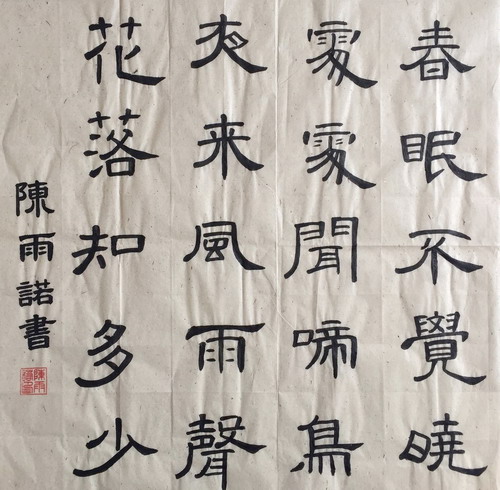 春眠不覺曉
處處聞啼鳥
夜来風雨聲
花落知多少
陳雨諾書